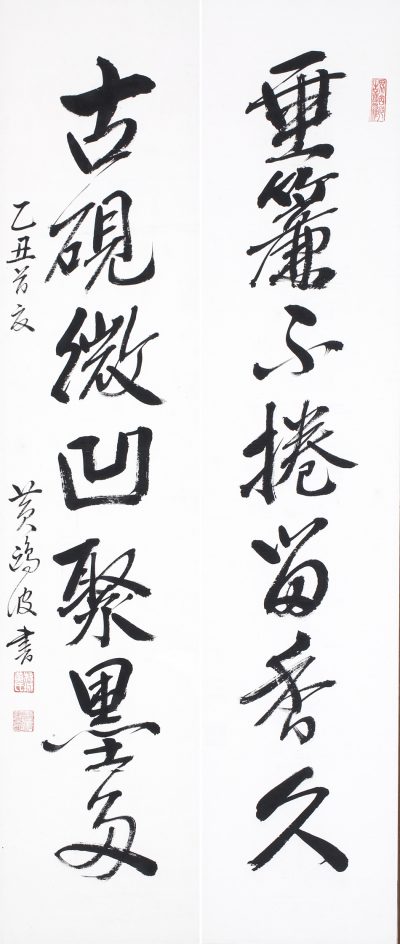 垂簾不捲留香久
古硯微凹聚墨多
乙丑首夏
黃鷗波書